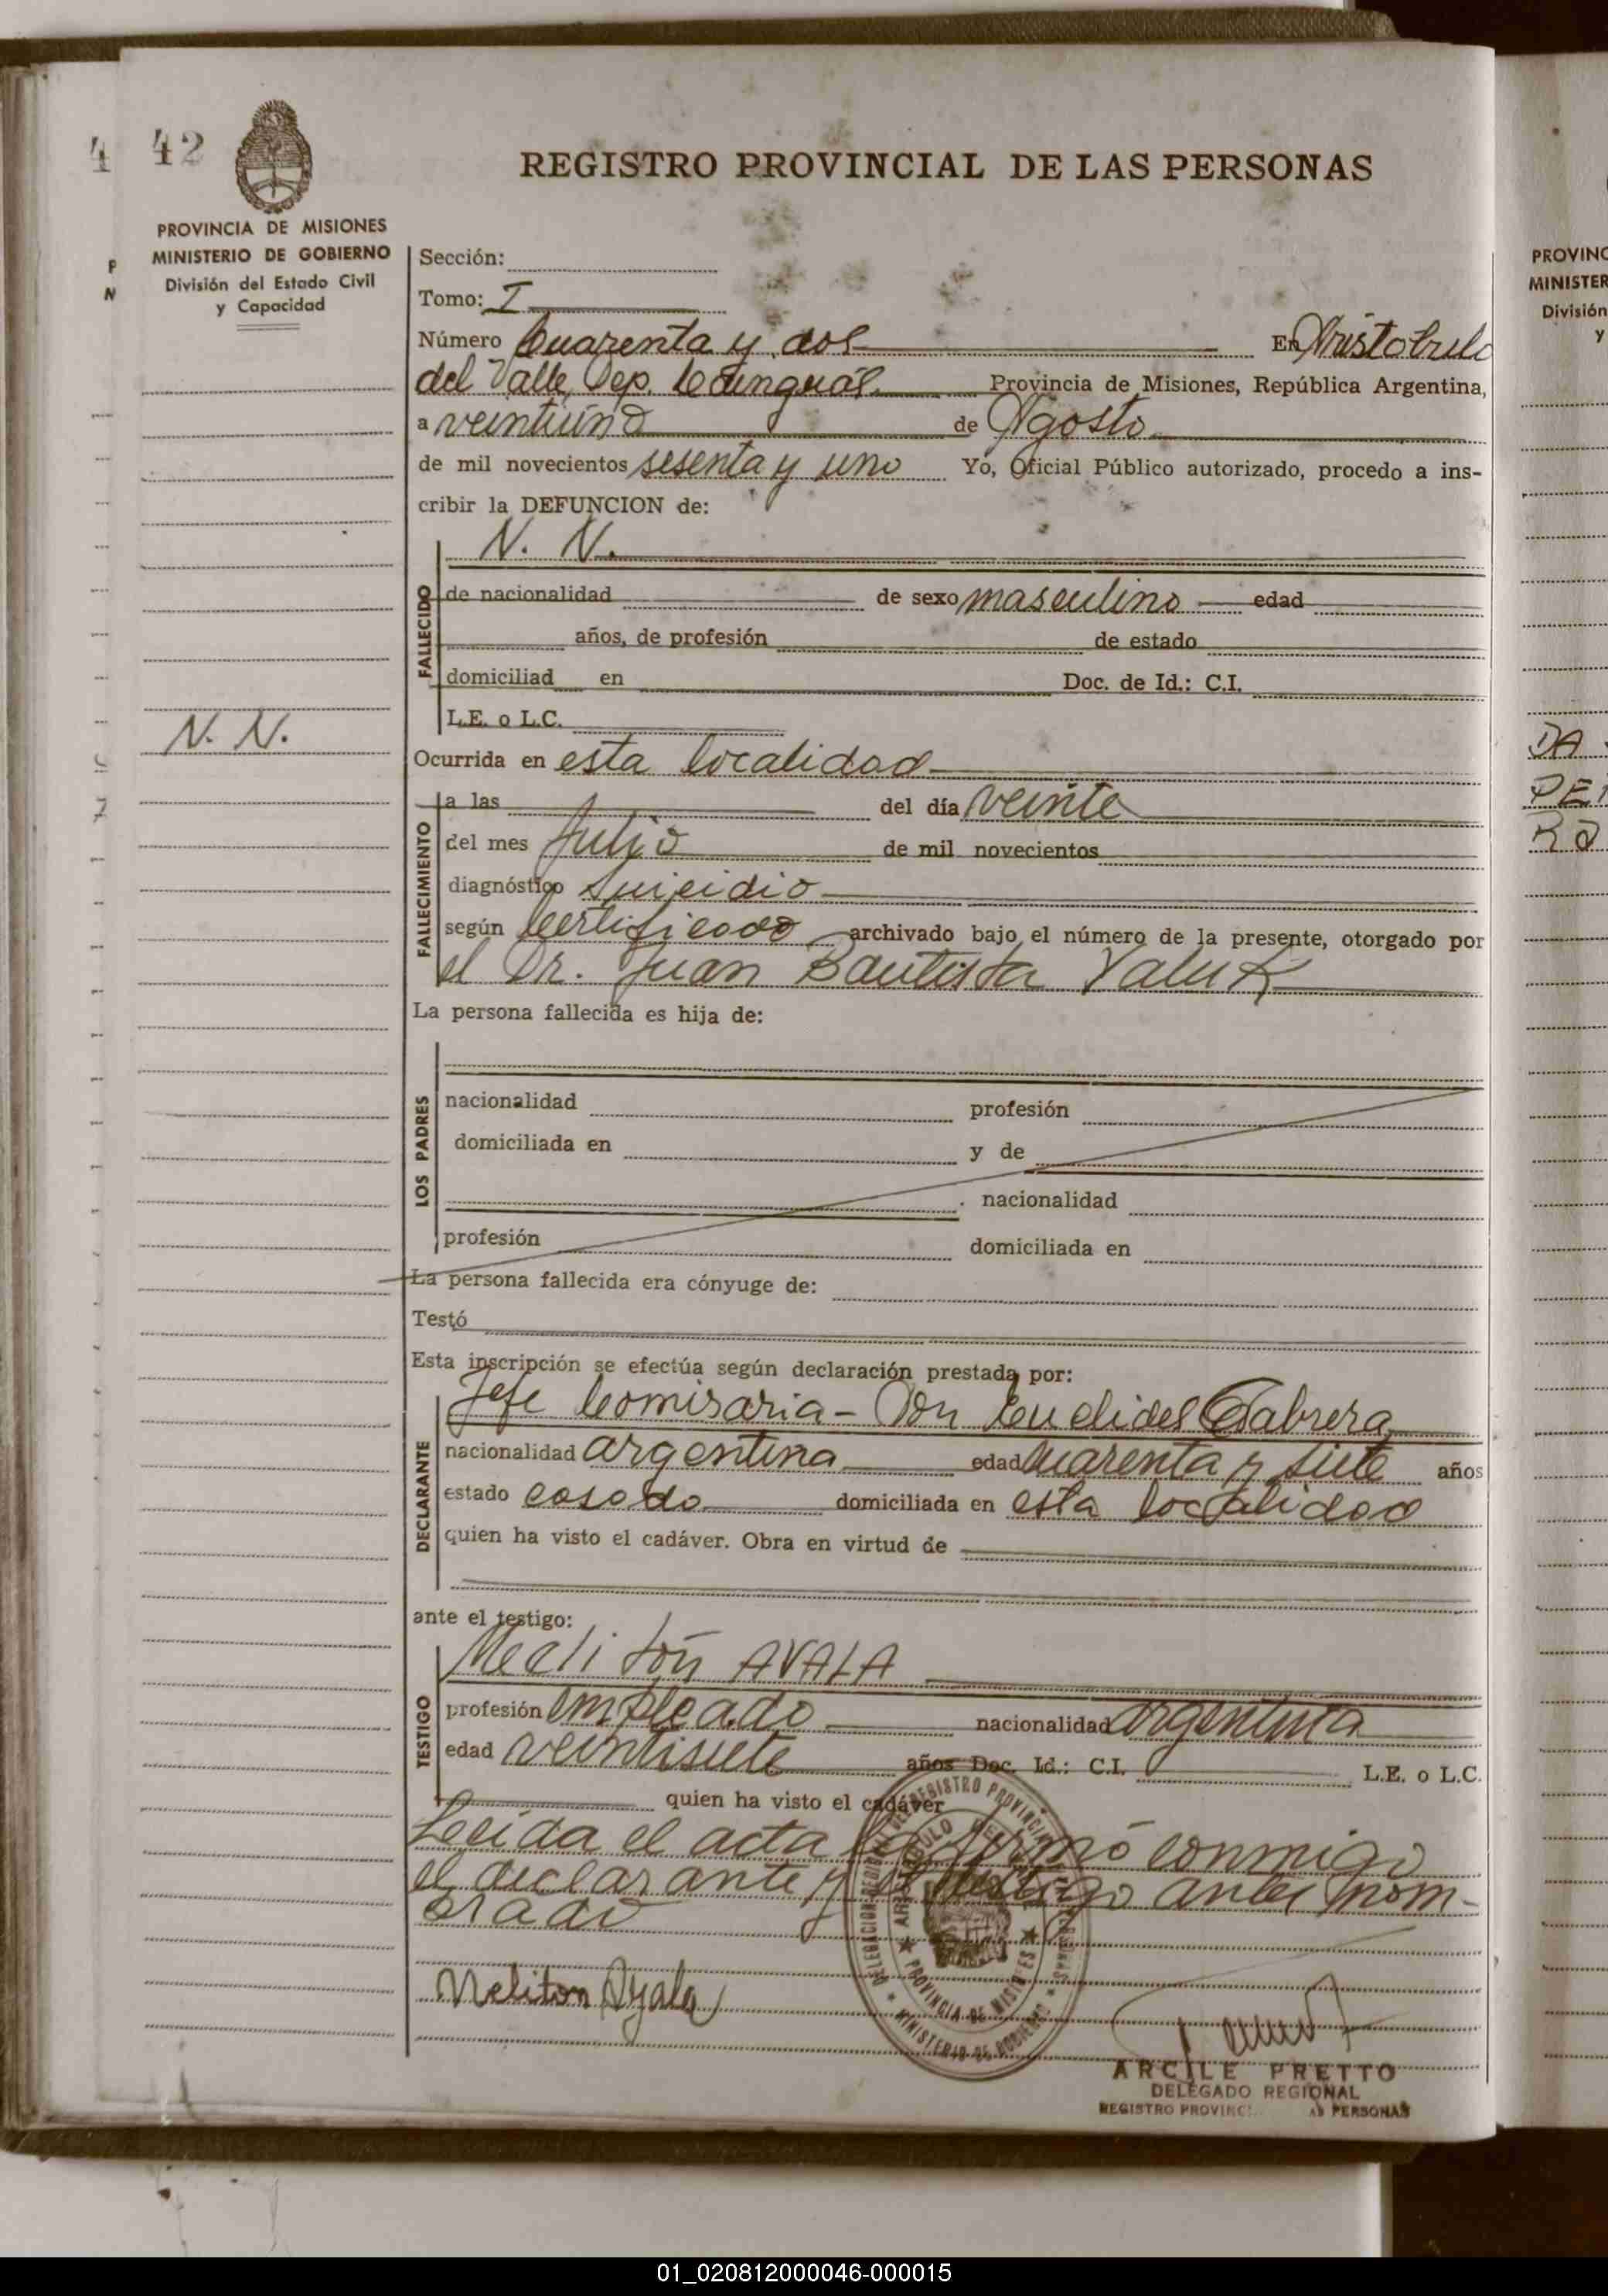 4 42
REGISTRO PROVINCIAL DE LAS PERSONAS
PROVINCIA DE MISIONES
MINISTERIO DE GOBIERNO
División del Estado Civil
y Capacidad
Sección:
Tomo: I
Número Cuarenta y dos En Aristobulo
del Valle, Dep. Cainguás Provincia de Misiones, República Argentina,
a veintiuno de Agosto
de mil novecientos sesenta y uno Yo, Oficial Público autorizado, procedo a ins-
cribir la DEFUNCION de:
FALLECIDO
N. N.
de nacionalidad de sexo masculino edad
años, de profesión de estado
domiciliad en Doc. de Id.: C.I.
L.E. o L.C.
N. N.
Ocurrida en esta localidad
FALLECIMIENTO
a las del día veinte
del mes Julio de mil novecientos
diagnóstico suicidio
según Certificado archivado bajo el número de la presente, otorgado por
el Dr. Juan Bautista
La persona fallecida es hija de:
LOS PADRES
nacionalidad profesión
domiciliada en y de
nacionalidad
profesión domiciliada en
La persona fallecida era cónyuge de:
Testó
Esta inscripción se efectúa según declaración prestada por:
DECLARANTE
Jefe Comisaria - Don Euclides Cabrera
nacionalidad argentina edad cuarenta y siete años
estado casado domiciliada en esta localidad
quien ha visto el cadáver. Obra en virtud de
ante el testigo:
TESTIGO
Melitón AYALA
profesión empleado nacionalidad argentina
edad veintisiete años Doc. Id.: C.I. L.E. o L.C.
quien ha visto el cadáver
Leída el acta la firmó conmigo
el declarante y el testigo antes nom-
brado
Meliton Ayala
PROVINCIA DE MISIONES
MINISTERIO DE GOBIERNO
ARCILE PRETTO
DELEGADO REGIONAL
REGISTRO PROVINC AS PERSONAS
PROVINC
MINISTER
División
y
DA
PE
01_020812000046-000015